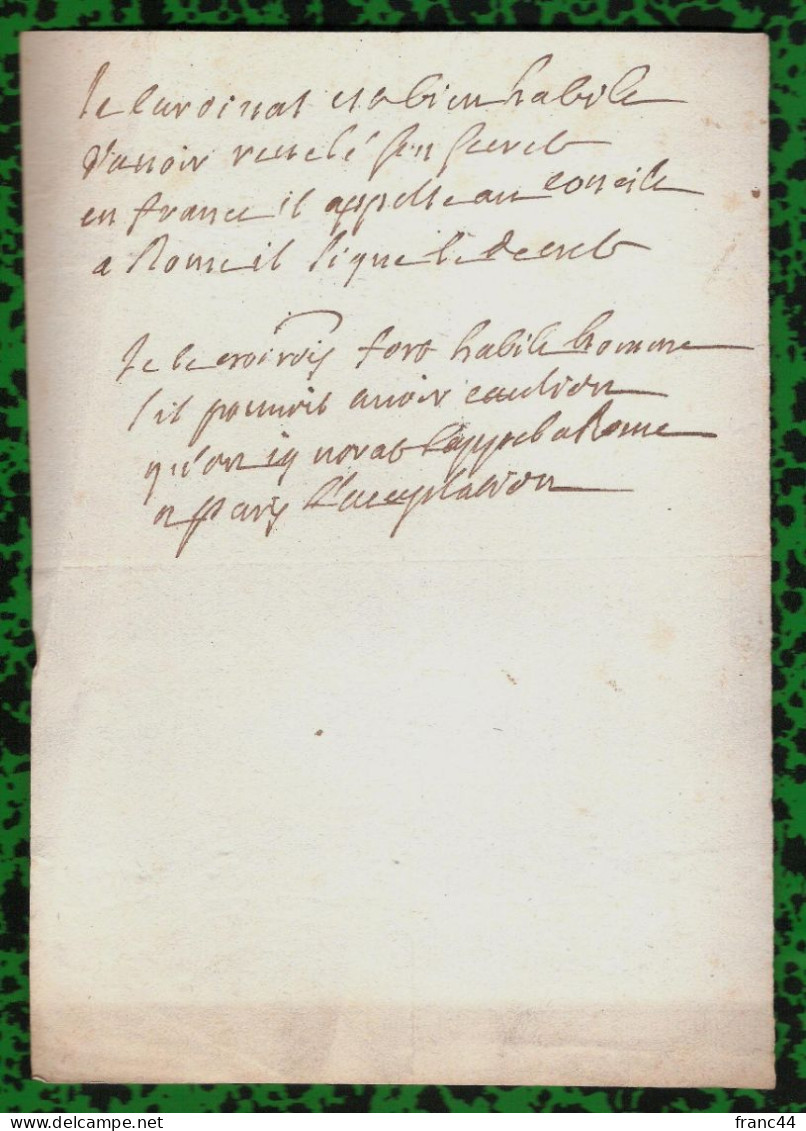 le Cardinal est bien habile
d'avoir revelé son secret
en france il appelle au concile
a Rome il signe le decret
Je le croirois fort habile homme
s'il pouvoit avoir caution
qu'on ignorat l'appel a Rome
a paris l'acceptation
franc44